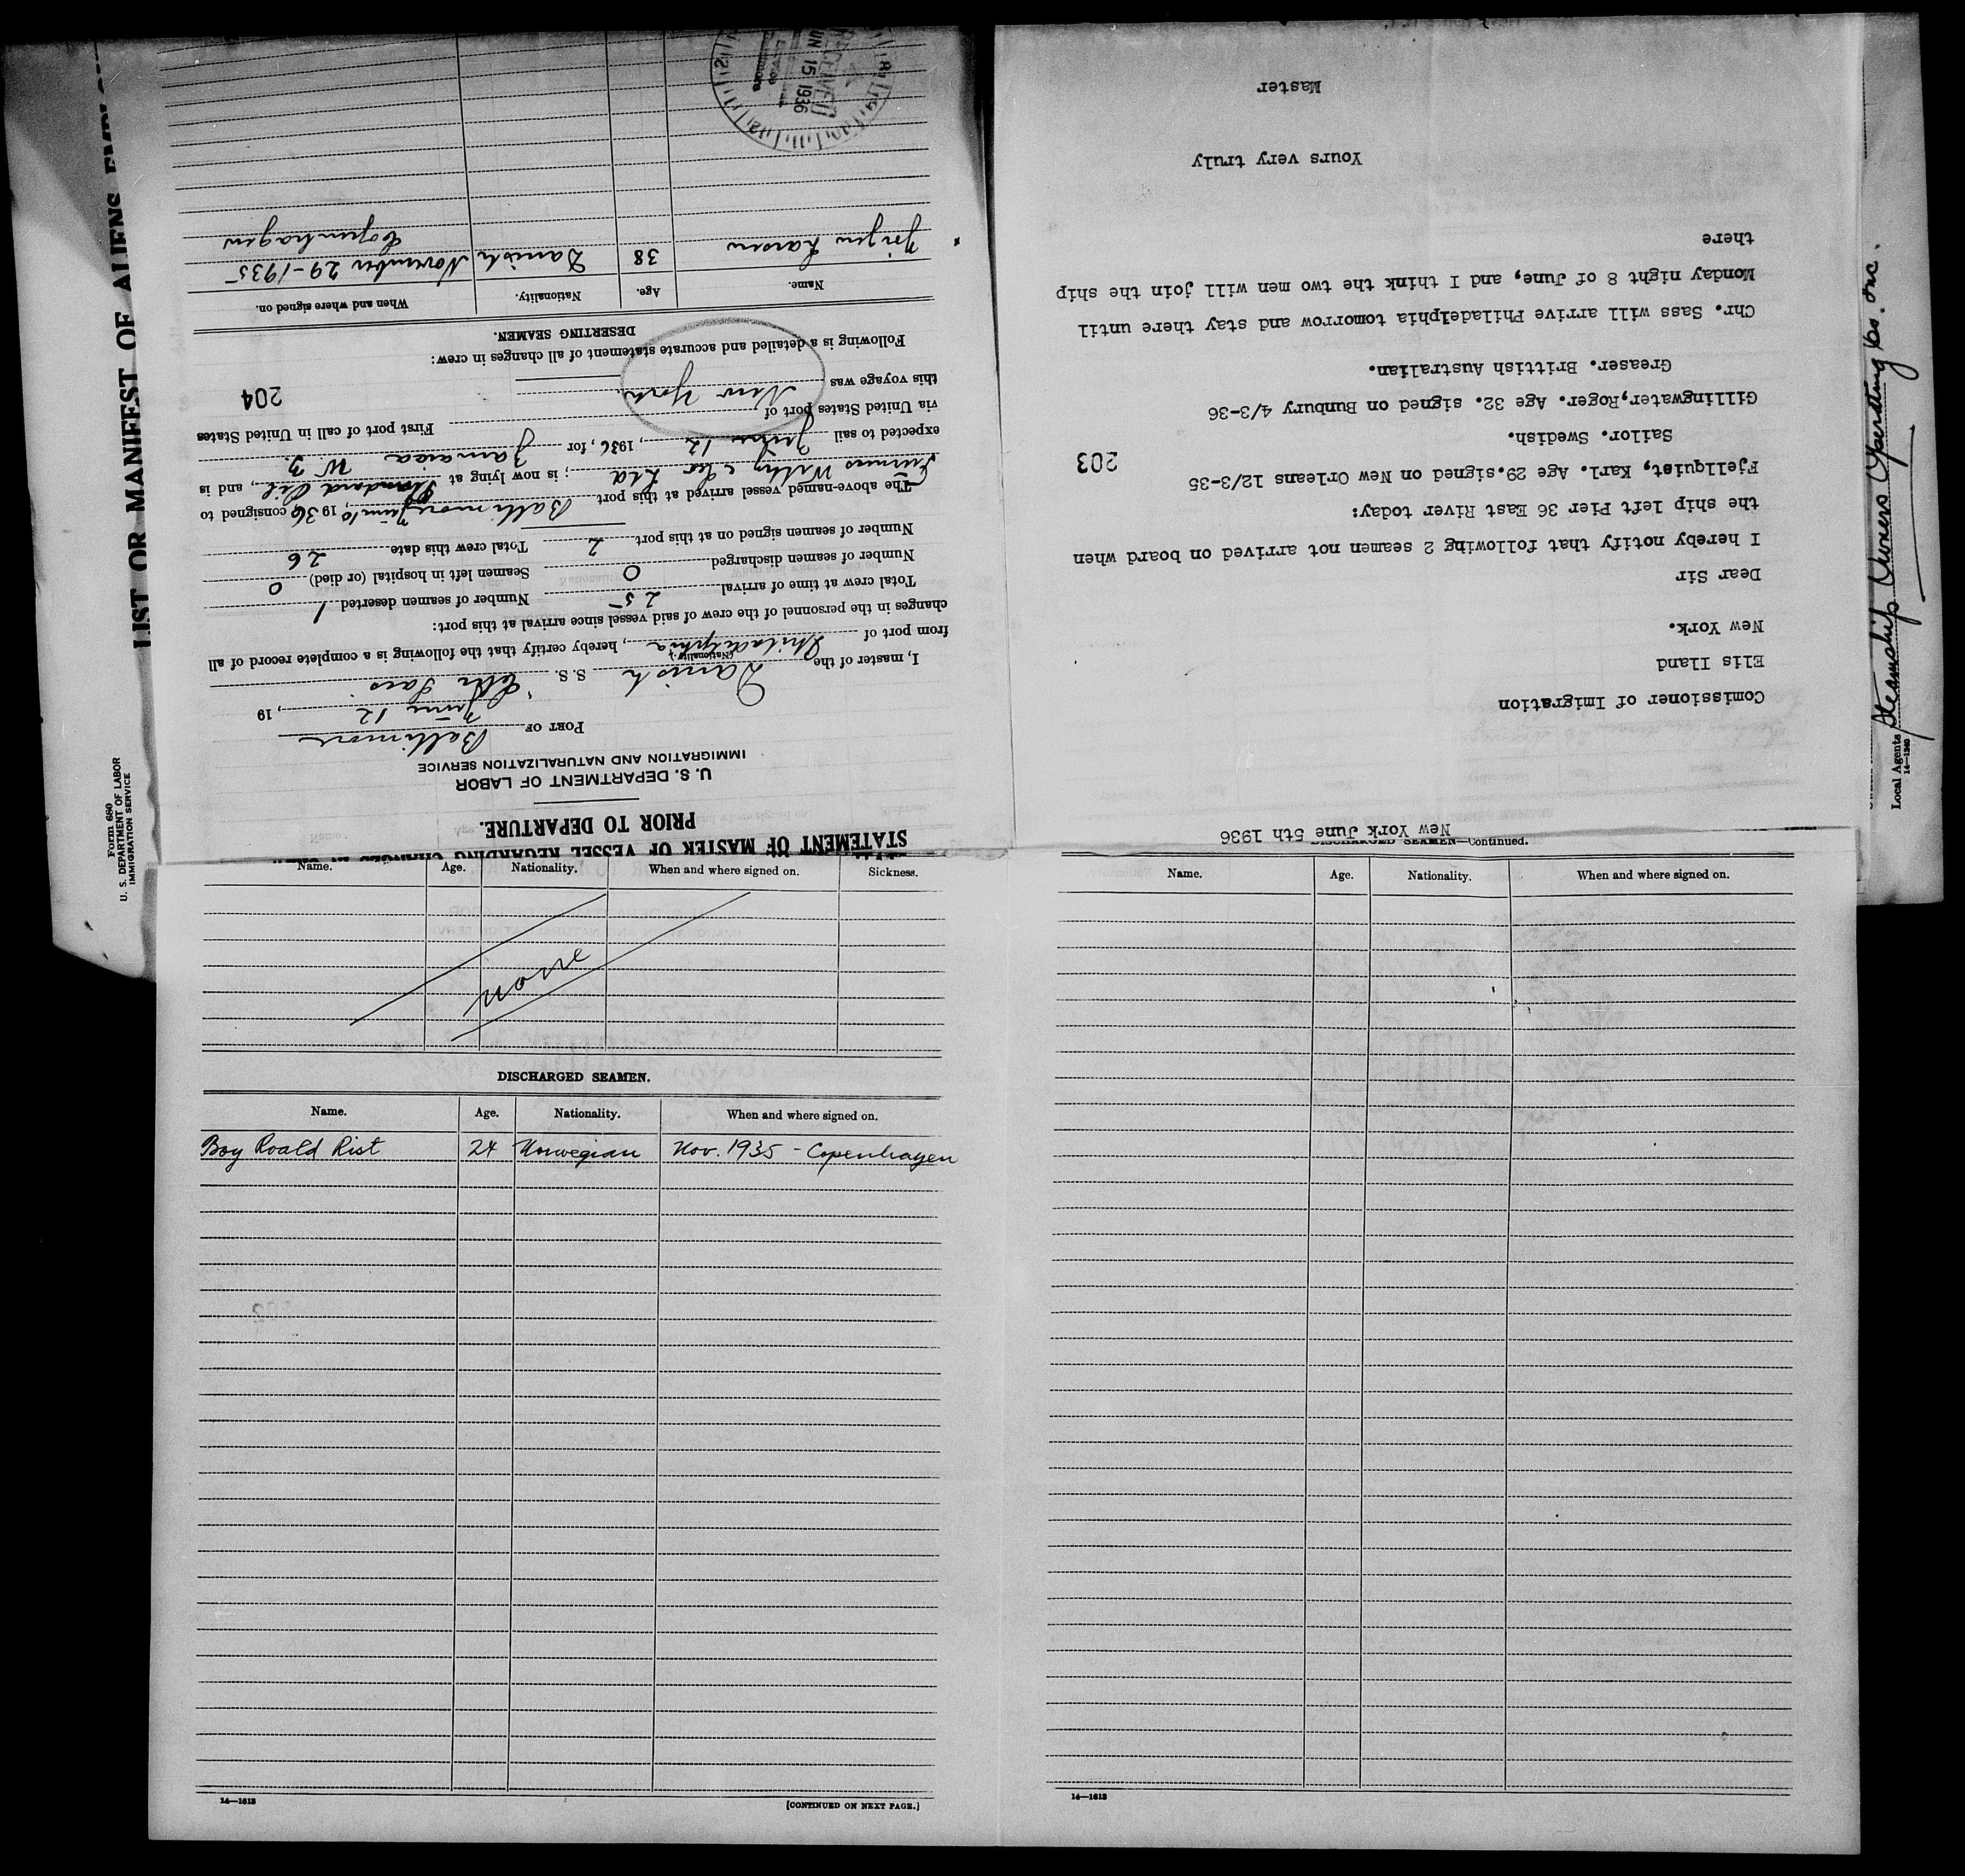 LIST OR MANIFEST OF ALIENS
Form 680
U. S. DEPARTMENT OF LABOR
IMMIGRATION SERVICE
STATEMENT OF MASTER OF VESSEL REGARDING CHANGES
PRIOR TO DEPARTURE.
U. S. DEPARTMENT OF LABOR
IMMIGRATION AND NATURALIZATION SERVICE
PORT OF Baltimore
June 12, 19
I, master of the Danish S. S.
(Nationality.)
from port of Philadelphia, hereby certify that the following is a complete record of all
changes in the personnel of the crew of said vessel since arrival at this port:
Total crew at time of arrival 25 Number of seamen deserted 1
Number of seamen discharged 0 Seamen left in hospital (or died) 0
Number of seamen signed on at this port 2 Total crew this date 26
The above-named vessel arrived at this port Baltimore June 10, 1936 consigned to
Furness Withy & Co Ltd; is now lying at Standard Oil, and is
expected to sail June 12, 1936, for Jamaica W. I.
via United States port of First port of call in United States
this voyage was New York
204
Following is a detailed and accurate statement of all changes in crew:
DESERTING SEAMEN.
Name. Age. Nationality. When and where signed on.
Jörgen Larsen 38 Danish November 29-1935
Copenhagen
RECEIVED
JUN 15 1936
Baltimore
New York June 5th 1936
Comissioner of Imigration
Elis Iland
New York.
Dear Sir
I hereby notify that following 2 seamen not arrived on board when
the ship left Pier 36 East River today:
Fjellquist, Karl. Age 29.signed on New Orleans 12/3-35
Sailor. Swedish.
203
Gillingwater.Roger. Age 32. signed on Bunbury 4/3-36
Greaser. Brittish Australian.
Chr. Sass will arrive Philadelphia tomorrow and stay there until
Monday night 8 of June, and I think the two men will join the ship
there
Yours very truly
Master
Local Agents Steamship Owners Operating Co. Inc.
14—1240
Name. Age. Nationality. When and where signed on. Sickness.
none
DISCHARGED SEAMEN.
Name. Age. Nationality. When and where signed on.
Boy Roald Rist 24 Norwegian Nov. 1935 - Copenhagen
14—1613
[CONTINUED ON NEXT PAGE.]
DISCHARGED SEAMEN—Continued.
Name. Age. Nationality. When and where signed on.
14—1613